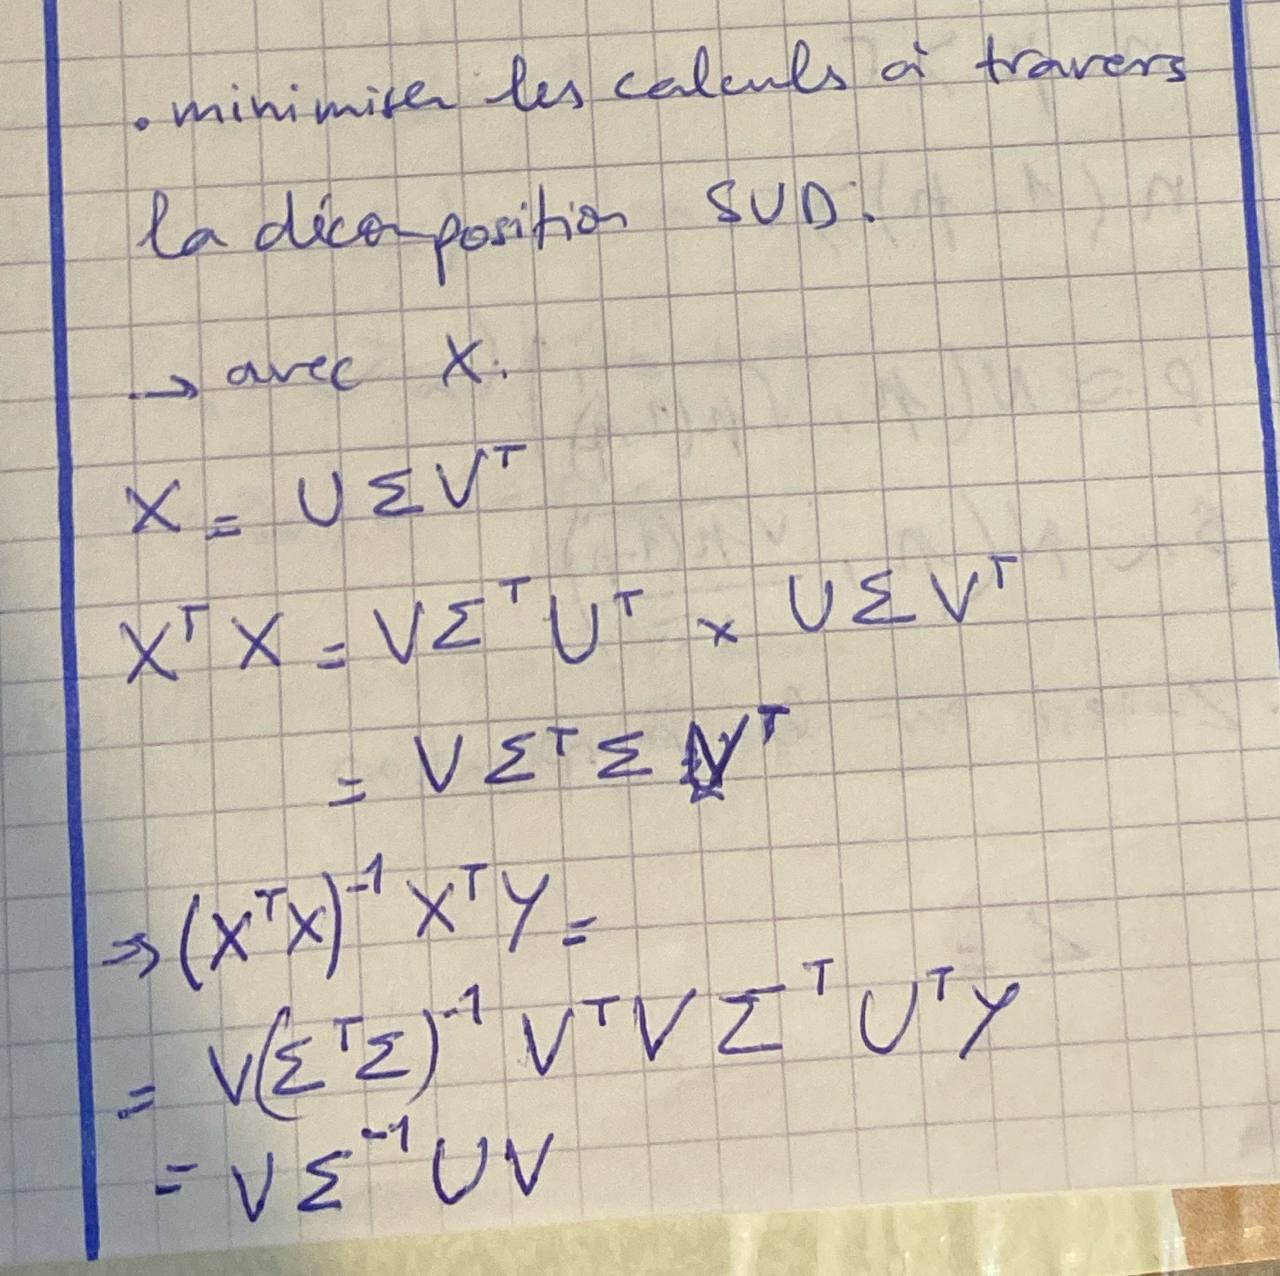 . minimiser les calculs à travers
la décomposition SVD:
→ avec X:
X = U Σ V^T
X^T X = V Σ^T U^T × U Σ V^T
= V Σ^T Σ V^T
⇒ (X^T X)^-1 X^T Y =
= V(Σ^T Σ)^-1 V^T V Σ^T U^T Y
= V Σ^-1 U V